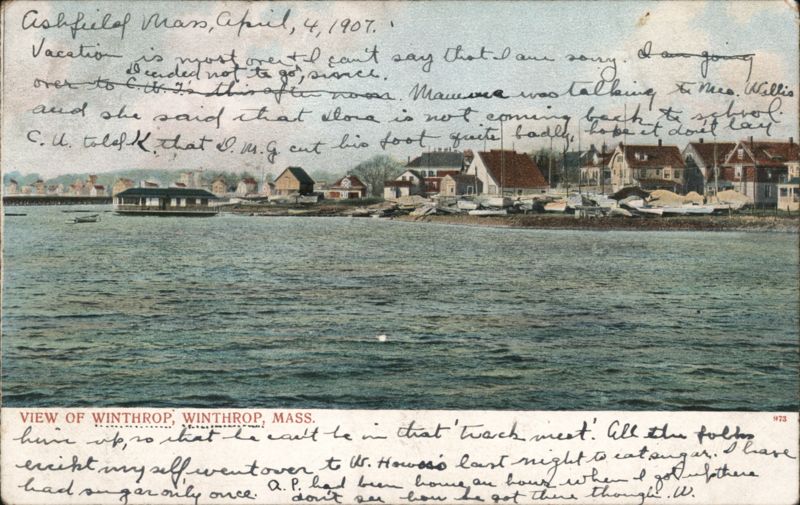 Ashfield Mass, April, 4, 1907.
Vacation is most over & I can't say that I am sorry. I am going
I ended not to go, since.
over to C.W.T's this afternoon. Mamma was talking to Mrs. Willis
and she said that Dora is not coming back to school.
C. U. told K. that D. M. G cut his foot quite badly, hope it don't lay
VIEW OF WINTHROP, WINTHROP, MASS.
973
him up, so that he can't be in that 'track meet'. All the folks
excikt myself went over to W. Howes's last night to eat sugar. I have
had sugar only once. A.P. had been home an hour when I got up there
don't see how he got there though. W.